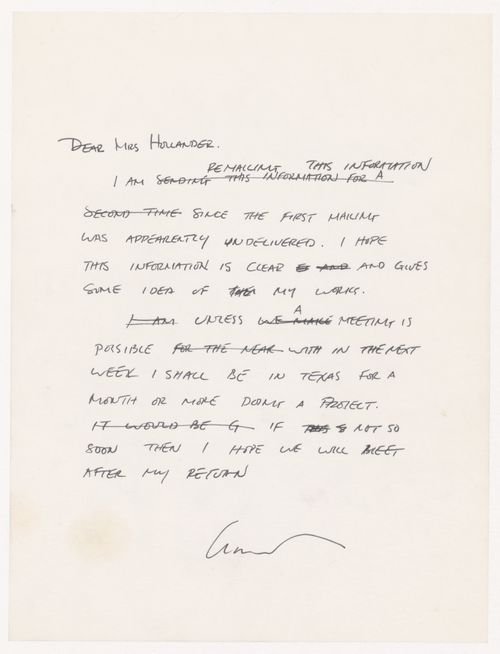 DEAR MRS HOLLANDER.
REMAILING THIS INFORMATION
I AM SENDING THIS INFORMATION FOR A
SECOND TIME SINCE THE FIRST MAILING
WAS APPEARENTLY UNDELIVERED. I HOPE
THIS INFORMATION IS CLEAR AND AND GIVES
SOME IDEA OF MY WORKS.
A
I AM UNLESS WE MAKE MEETING IS
POSIBLE FOR THE NEAR WITH IN THE NEXT
WEEK I SHALL BE IN TEXAS FOR A
MONTH OR MORE DOING A PROJECT.
IT WOULD BE G IF NOT SO
SOON THEN I HOPE WE WILL MEET
AFTER MY RETURN